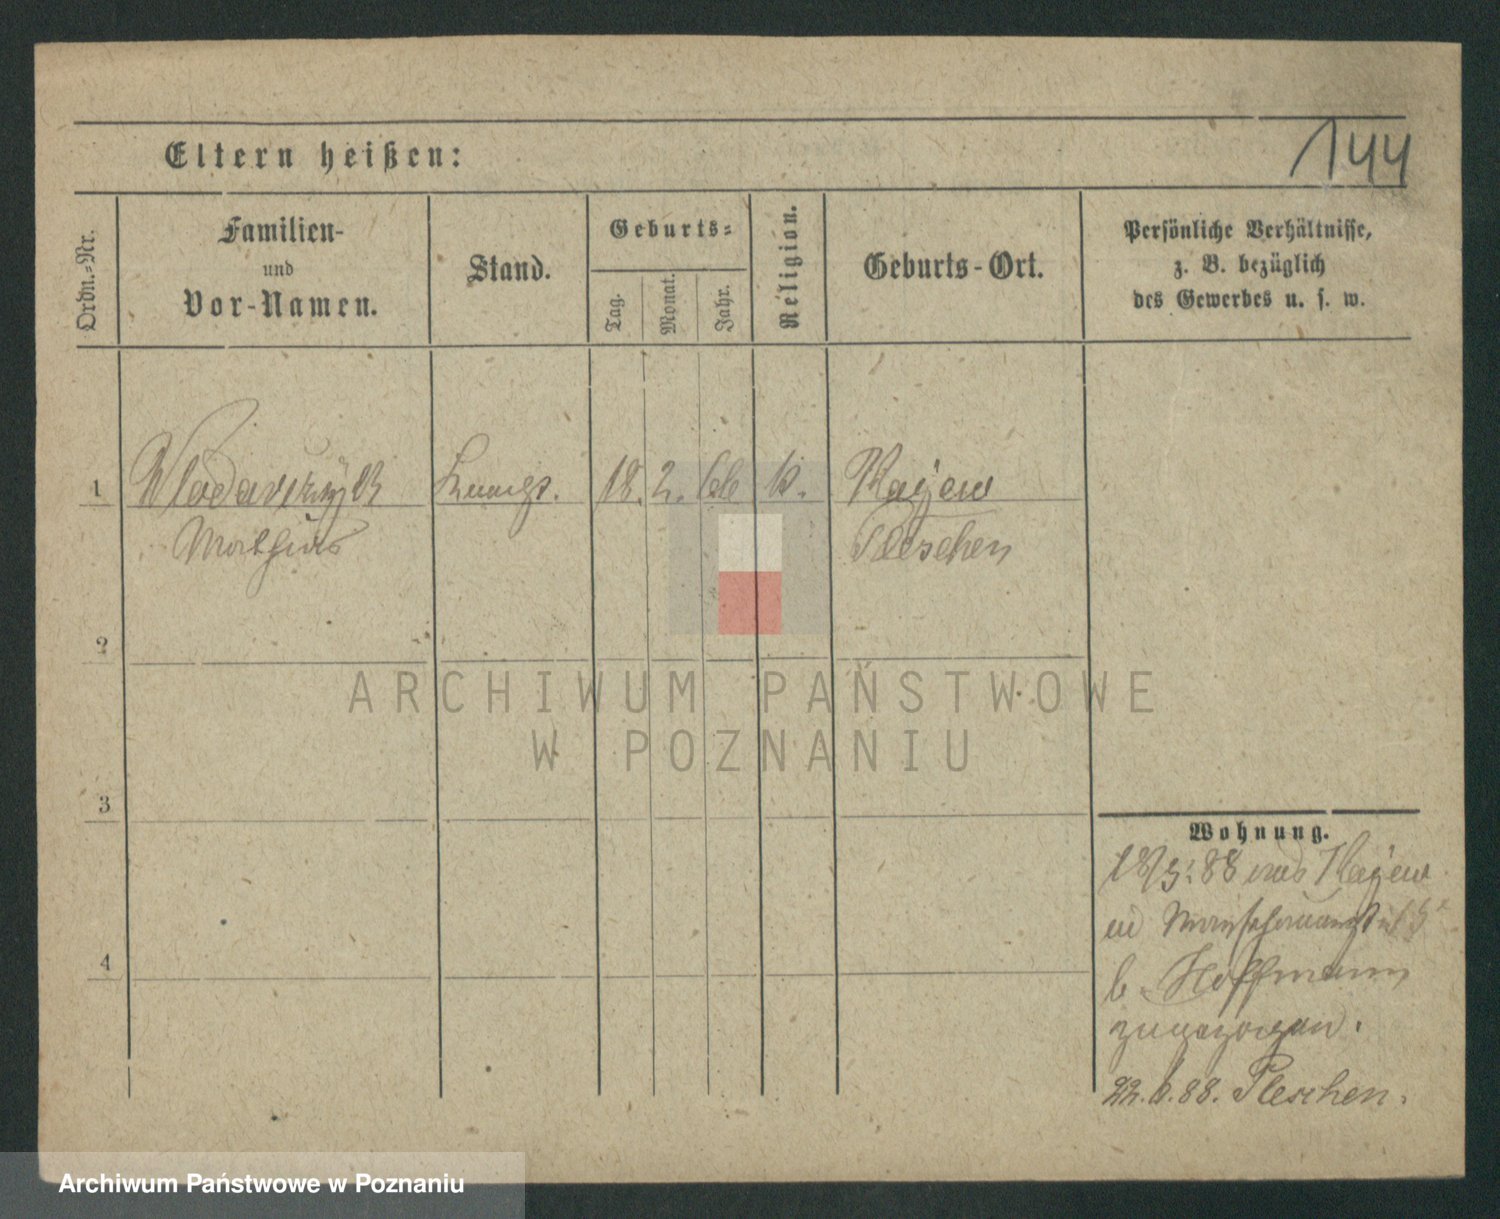 144
Eltern heißen:
Ordn.-Nr.
Familien-
und
Vor-Namen.
Stand.
Geburts-
Tag.
Monat.
Jahr.
Religion.
Geburts-Ort.
Persönliche Verhältnisse,
z. B. bezüglich
des Gewerbes u. s. w.
1
18. 2. 66 k.
Mathias
Pleschen
2
ARCHIWUM PAŃSTWOWE
W POZNANIU
3
Wohnung.
88 aus
4
b. Hoffmann
zugezogen.
22.6.88. Pleschen.
Archiwum Państwowe w Poznaniu